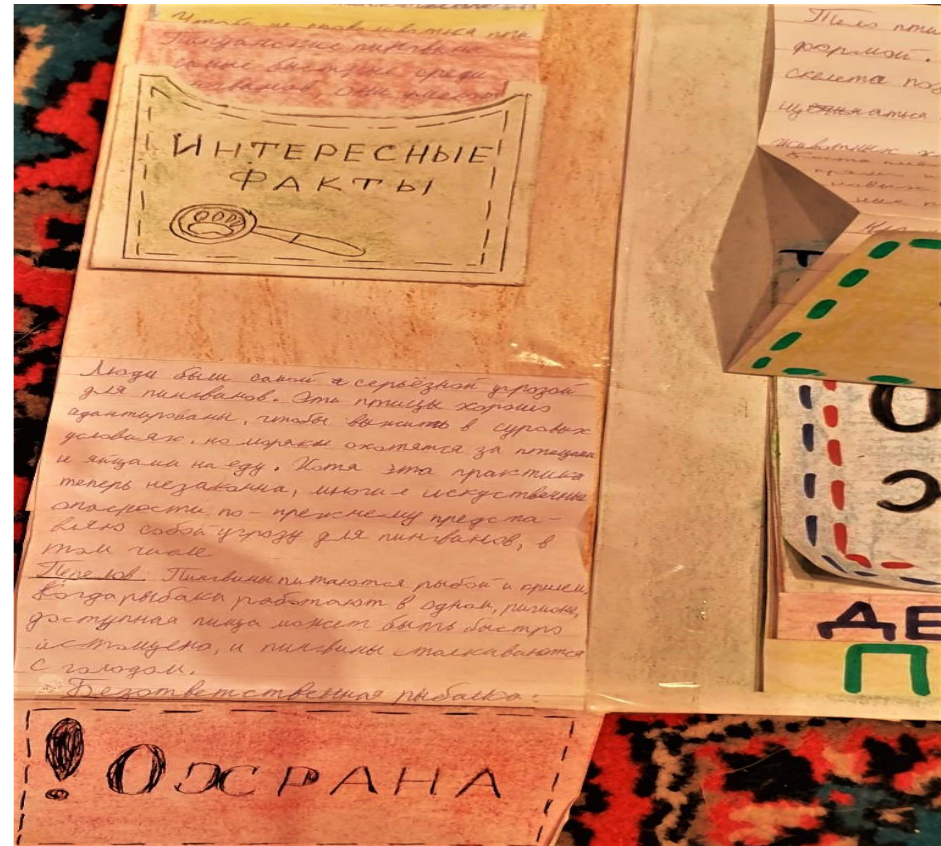 Папуанские пингвины
самые быстрые среди
пингвинов, они имеют
ИНТЕРЕСНЫЕ
ФАКТЫ
Люди были самой серьёзной угрозой
для пингвинов. Эти птицы хорошо
адаптированы, чтобы выжить в суровых
условиях, но моряки охотятся за птицами
и яйцами на еду. Хотя эта практика
теперь незаконна, многие искуственные
опасрости по-прежнему предста-
вляю собой угрозу для пингвинов, в
том числе
Перелов: Пингвины питаются рыбой и крилем,
Когда рыбаки работают в одном, регионе,
доступная пища может быть быстро
истощена, и пингвины сталкиваются
с голодом.
Безответственная рыбалка:
! ОХРАНА
Тело
формой.
скелета
животных
О
Э
ДЕ
П